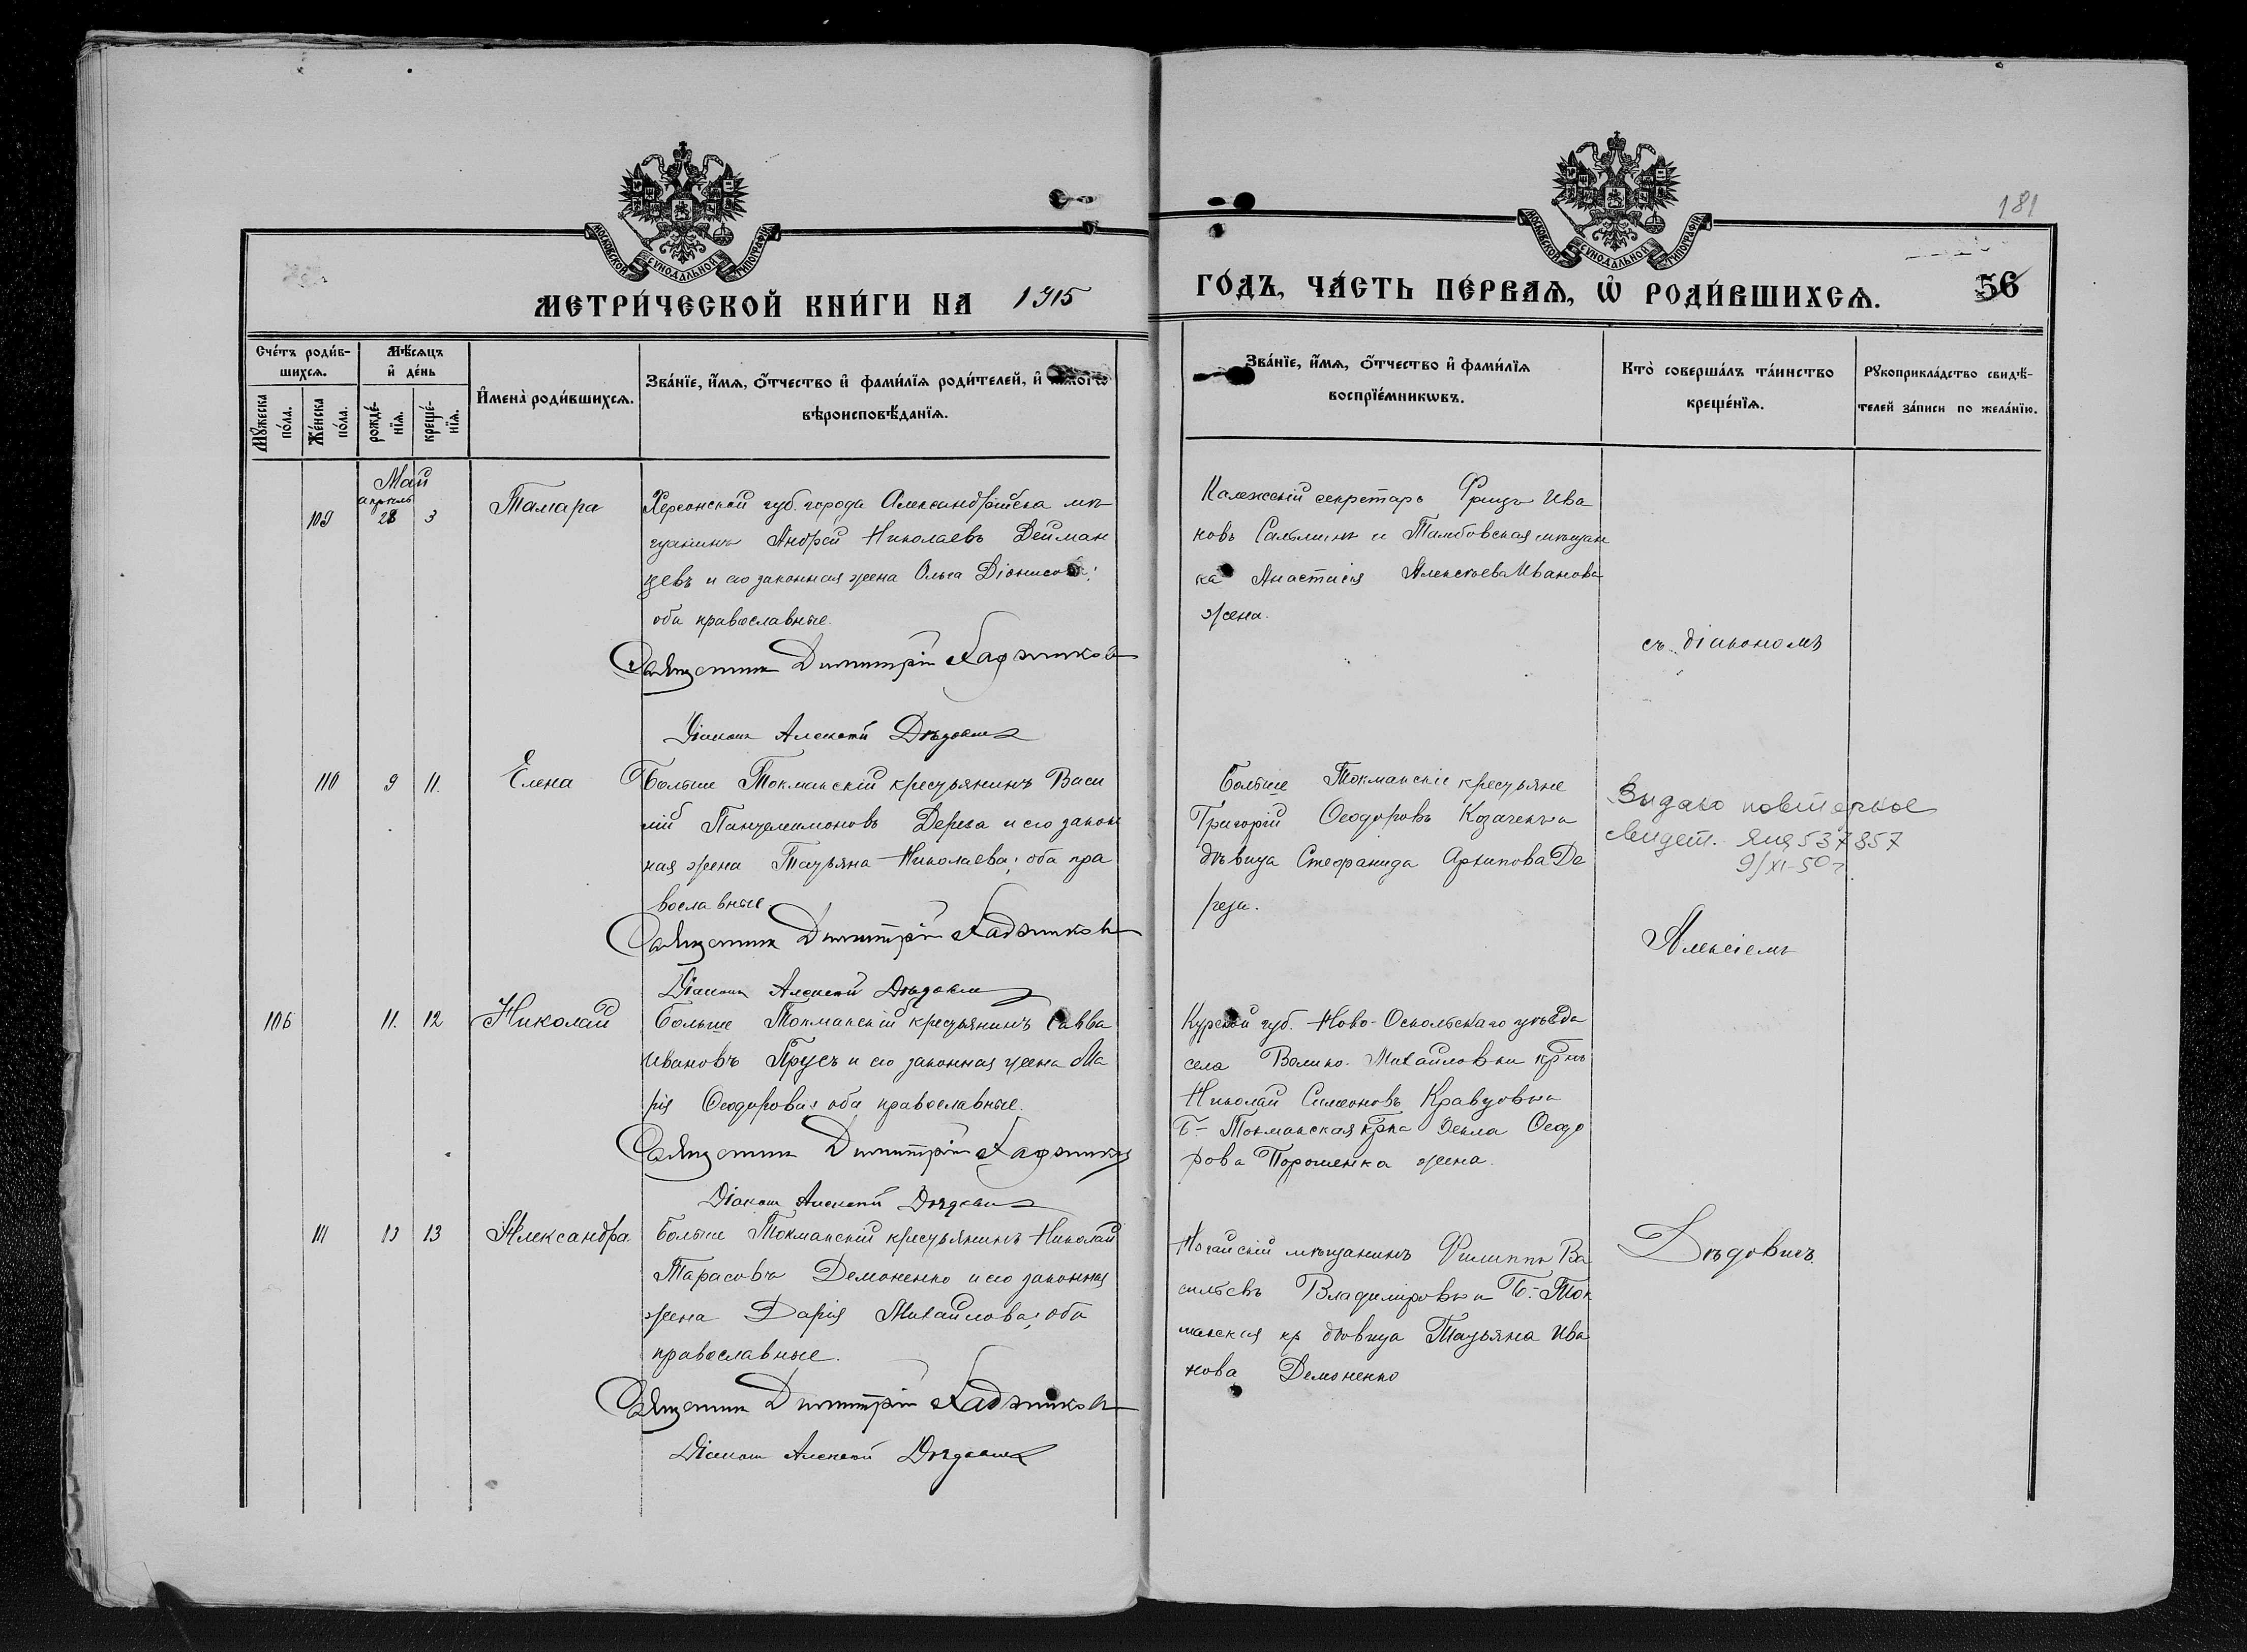 181
МОСКОВСКОЙ СѴНОДАЛЬНОЙ ТИПОГРАФІИ
МОСКОВСКОЙ СѴНОДАЛЬНОЙ ТИПОГРАФІИ
МЕТРИ́ЧЕСКОЙ КНИ́ГИ НА 1915
ГО́ДЪ, ЧА́СТЬ ПЕ́РВАѦ, Ѡ҆ РОДИ́ВШИХСѦ.
56
Сче́тъ роди́в-
шихсѧ.
Мꙋ́жеска
по́ла.
Же́нска
по́ла.
Мѣ́сѧцъ
и҆ де́нь
рожде́-
нїѧ.
креще́-
нїѧ.
И҆мена̀ роди́вшихсѧ.
Зва́нїе, и҆́мѧ, ѻ҆́тчество и҆ фами́лїѧ роди́телей, и҆
вѣроисповѣ́данїѧ.
Зва́нїе, и҆́мѧ, ѻ҆́тчество и҆ фами́лїѧ
воспрїе́мникѡвъ.
Кто̀ соверша́лъ та́инство
креще́нїѧ.
Рꙋкоприкла́дство свидѣ́-
телей за́писи по жела́нїю.
Май
апрѣль
109 28 3 Тамара
Херсонской губ. города Александрійска мѣ
щанинъ Андрей Николаевъ Дейман
цевъ и его законная жена Ольга Діонисова;
оба православные.
Священникъ Димитрій
Діаконъ Алексѣй Дѣдовичъ
Колежскій секретарь Фрицъ Ива
новъ и Тамбовская мѣщан
ка Анастасія Алексѣева Иванова
жена.
съ діакономъ
110 9 11. Елена
Больше Токмакскій крестьянинъ Васи
лій Пантелимоновъ Дереза и его закон
ная жена Татьяна Николаева; оба пра
вославные.
Священникъ Димитрій
Діаконъ Алексѣй Дѣдовичъ
Больше Токмакскіе крестьяне
Григорій Ѳеодоровъ Козаченъ и
дѣвица Стефанида Архипова Де
реза.
Выдано повторное
свидет. ЯЦ 537857
9/XI-50г.
Алексіемъ
106 11. 12 Николай
Больше Токмакскій крестьянинъ Савва
Ивановъ Прусъ и его законная жена Ма
рія Ѳеодорова; оба православные.
Священникъ Димитрій
Діаконъ Алексѣй Дѣдовичъ
Курской губ. Ново-Оскольскаго уѣзда
села Велико-Михайловки крнъ
Николай Симеоновъ Кравцовъ и
Б-Токмакская крка Ѳекла Ѳеодо
рова Порошенка жена.
111 13 Александра
Больше Токмакскій крестьянинъ Николай
Тарасовъ Демоненко и его законная
жена Дарія Михайлова; оба
православные.
Священникъ Димитрій
Діаконъ Алексѣй Дѣдовичъ
Ногайскій мѣщанинъ Филиппъ Ва
сильевъ Владиміровъ и Б.-Ток
макская кр дѣвица Татьяна Ива
нова Демоненко
Дѣдовичъ.